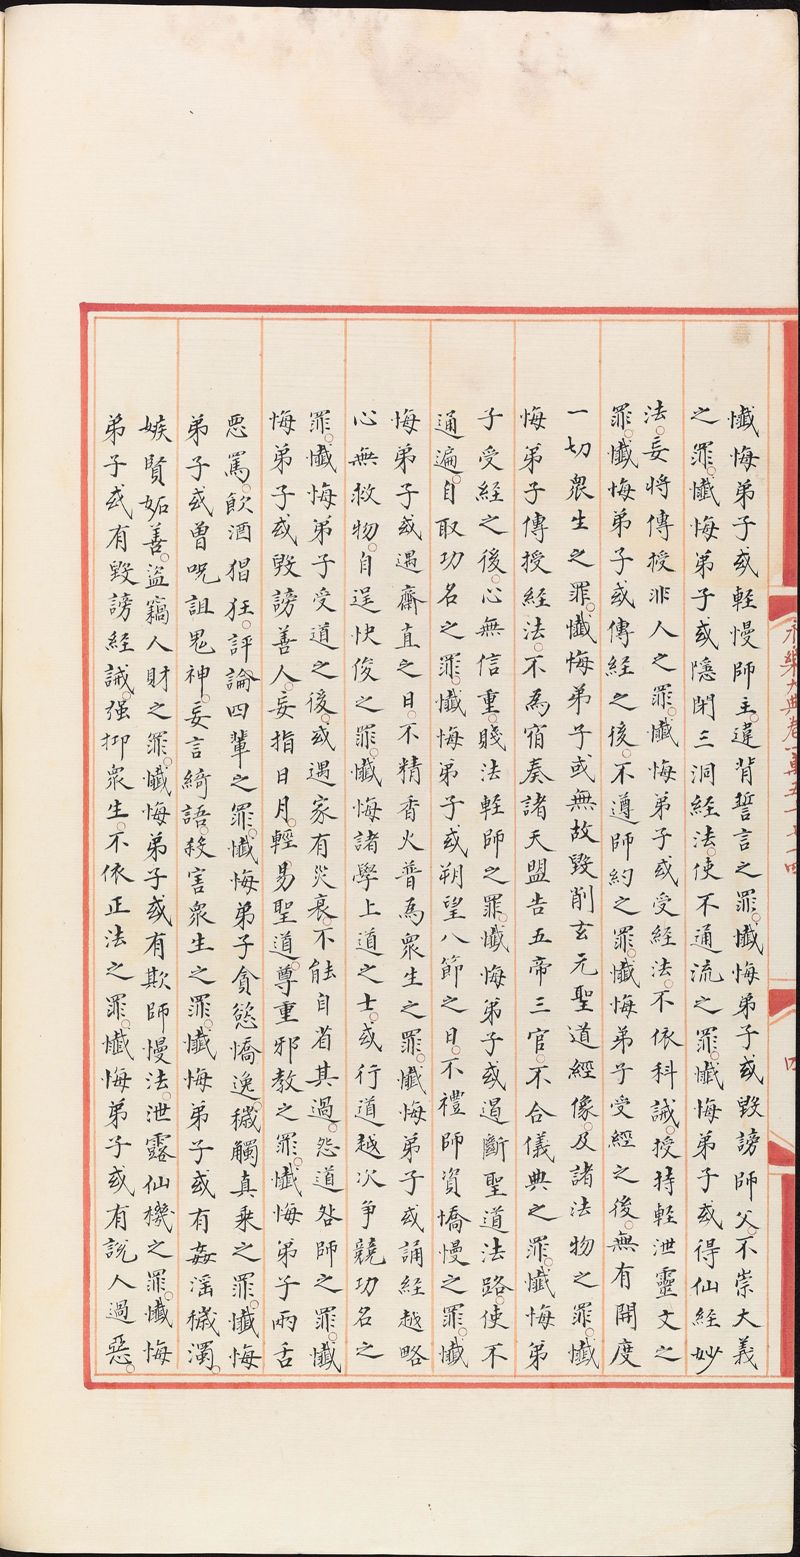 永樂大典卷一萬五千七十四
四
懺悔弟子或輕慢師主。違背誓言之罪。懺悔弟子或毀謗師父。不崇大義
之罪。懺悔弟子或隱閉三洞經法。使不通流之罪。懺悔弟子或得仙經妙
法。妄將傳授非人之罪。懺悔弟子或受經法。不依科誡。授持輕泄靈文之
罪。懺悔弟子或傳經之後。不遵師約之罪。懺悔弟子受經之後。無有開度
一切衆生之罪。懺悔弟子或無故毀削玄元聖道經像。及諸法物之罪。懺
悔弟子傳授經法。不爲宿奏諸天盟告五帝三官。不合儀典之罪。懺悔弟
子受經之後。心無信重。賤法輕師之罪。懺悔弟子或遏斷聖道法路。使不
通遍。自取功名之罪。懺悔弟子或朔望八節之日。不禮師資憍慢之罪。懺
悔弟子或遇齋直之日。不精香火普爲衆生之罪。懺悔弟子或誦經越略
心無救物。自逞快俊之罪。懺悔諸學上道之士。或行道越次争競功名之
罪。懺悔弟子受道之後。或遇家有災衰。不能自省其過。怨道咎師之罪。懺
悔弟子或毀謗善人。妄指日月。輕易聖道。尊重邪教之罪。懺悔弟子兩舌
惡罵。飲酒猖狂。評論四輩之罪。懺悔弟子貪慾憍逸。穢觸真乗之罪。懺悔
弟子或曽呪詛鬼神。妄言綺語。殺害衆生之罪。懺悔弟子或有姦滛穢濁。
嫉賢妬善。盗竊人財之罪。懺悔弟子或有欺師慢法。泄露仙機之罪。懺悔
弟子或有毀謗經誡。强抑衆生。不依正法之罪。懺悔弟子或有説人過惡。